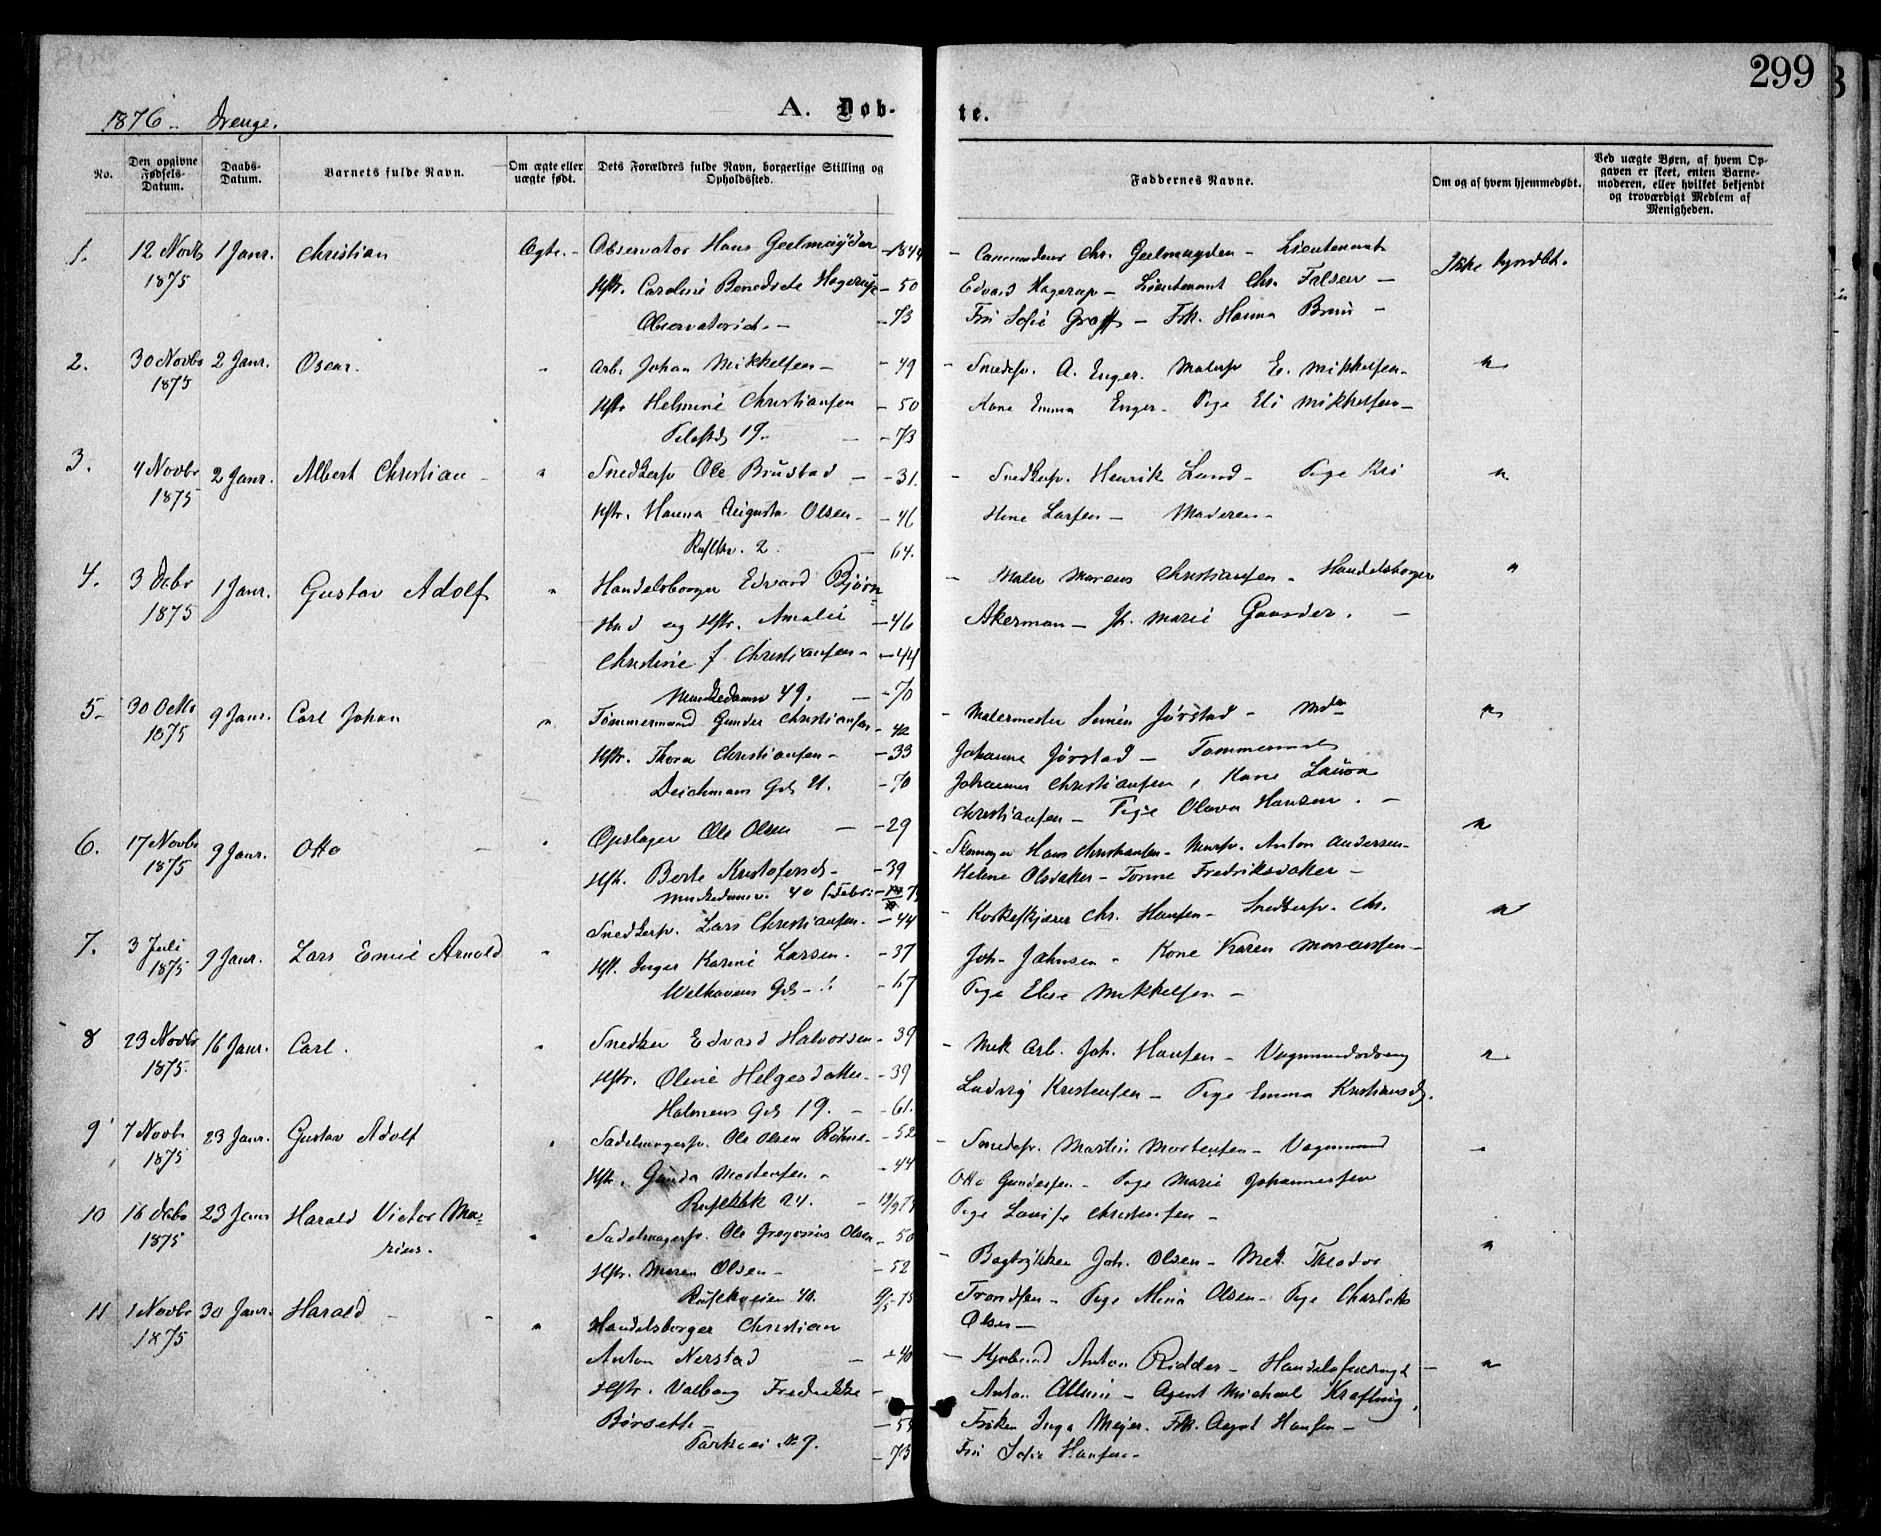 299
1876. Drenge.
A. Døb-
te.
No.
Den opgivne Fødsels-Datum.
Daabs-Datum.
Barnets fulde Navn.
Om ægte eller uægte født.
Dets Forældres fulde Navn, borgerlige Stilling og Opholdssted.
Faddernes Navne.
Om og af hvem hjemmedøbt.
Ved uægte Børn, af hvem Opgaven er skeet, enten Barnemoderen, eller hvilket bekjendt og troværdigt Medlem af Menigheden.
1. 12 Novb 1875 1 Janr. Christian Ægte. -
Observator Hans Geelmuyden - 1844
Hstr. Caroline Benedicte Hagerup - 50
Observatoriet. - - 73
- Commandeur Chr. Geelmuyden - Lieutenant
Edvard Hagerup - Lieutenant Chr. Falsen -
Fru Sofie Graff - Frk. Hanna Bruu -
Ikke
2. 30 Novbr 1875 2 Janr. Oscar.
Arb. Johan Mikkelsen - - 49
Hstr Helmine Christiansen - 50
19. - - 73
- A. Enger. Malersv E. Mikkelsen -
Kone Emma Enger - Pige Eli Mikkelsen -
3. 4 Novbr 1875 2 Janr. Albert Christian -
Snedkersv Ole Brustad - - 31.
Hstr. Hanna Augusta Olsen - - 46
2. 64.
- Snedkersv. Henrik Lund - Pige Kri
stine Larsen - Moderen -
4. 3 Debr 1875 1 Janr. Gustav Adolf
Handelsborger Edvard Bjørn=
stad og Hstr. Amalie - 46
Christine f Christiansen - - 44
Munkedamsv 49. - - 70
- Maler Marcus Christiansen - Handelsborger
Akerman - Jfr. Marie Gaarder. -
5 - 30 Octbr 1875 9 Janr. Carl Johan
Tømmermand Gunder Christiansen - 42
Hstr. Thora Christiansen - - 33
Deichmans Gd 21. - 70
- Malermester Simen Jørstad -
Johanne Jørstad - Tømmermand
Johannes Christiansen, Kone Laura
Christiansen - Pige Olava Hansen. -
6. 17 Novbr 1875 9 Janr. Otto -
Opslager Ole Olsen - - 29
Hstr. Berte Kristofersd - - 39
Munkedamsv. 40
- Hans Christiansen - Mursv. Anton Andersen -
Helene Olsdatter - Fredriksdatter -
7. 3 Juli 1875 9 Janr. Lars Emil Arnold
Snedkersv. Lars Christiansen. - 44
Hst. Inger Karine Larsen. - 37
Welhavens Gd - - 67
- Korkeskjærer Chr. Hansen - Snedkersv. Chr.
Joh. Johnsen - Kone Karen
Pige Elise Mikkelsen -
8 23 Novbr 1875. 16 Janr. Carl.
Snedker Edvard Halvorsen - 39
Hstr. Oline Helgesdatter - - 39
Holmens Gd 19. - - 61.
- Mek Arb. Joh. Hansen - Vognmandsdreng
Ludvig Kristensen - Pige Emma Kristiansd.
9 7 Novb 1875 23 Janr. Gustav Adolf
Sadelmagersv. Ole Olsen - 52
Hstr. Gunda Mortensen - 44
24. -
- Snedsv. Martin Mortensen - Vognmand
Otto Gundersen - Pige Marie Johannessen
Pige Lovise Christensen -
10 16 Debr 1875 23 Janr Harald Victor Ma=
rius.
Sadelmagersv. Ole Gregorius Olsen - 50
Hstr. Maren Olsen - - 52
40.
- Bogtrykker Joh. Olsen - Mek. Theodor
Trondsen - Pige Mina Olsen - Pige Charlotte
Olsen -
11 1 Novbr 1875 30 Janr. Harald -
Handelsborger Christian
Anton Nerstad - 40
Hstr. Valborg Fredrikke -
Børseth -
Parkvei No 9. - 75
- Anton Ridder -
Anton - Agent Michael
Frøken Inga Meyer. Frk. Aagot Hansen -
Fru Sofie Hansen -